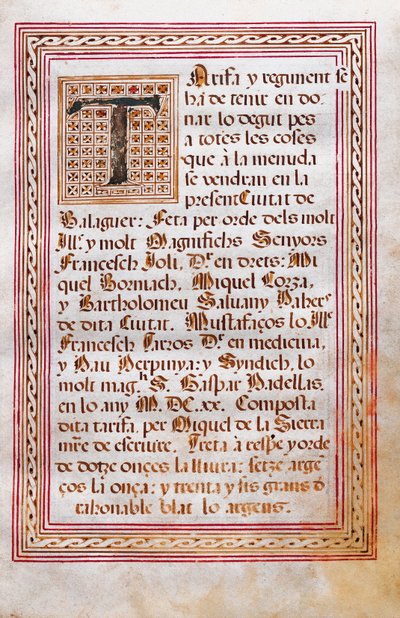 TArifa y regiment se
hà de tenir en do-
nar lo degut pes
a totes les coses
que à la menuda
se vendran en la
present Ciutat de
Balaguer: Feta per orde dels molt
Ill.s y molt Magnifichs Senyors
Francesch Joli, D.r en drets: Mi
quel Bormach, Miquel Corza,
y Bartholomeu Saluany Pahers
de dita Ciutat. Mustafaços lo Ill.e
Francesch Carros D.r en medicina,
y Pau Perpunya: y Syndich, lo
molt mag.h S. Gaspar Nadellas
en lo any M.DC.xx. Composta
dita tarifa, per Miquel de la Sierra
mr̃e de escriure. Treta à respe y orde
de dotze onçes la lliura: setze argẽ
ços la onça: y trenta y sis grans d
rahonable blat lo argens.